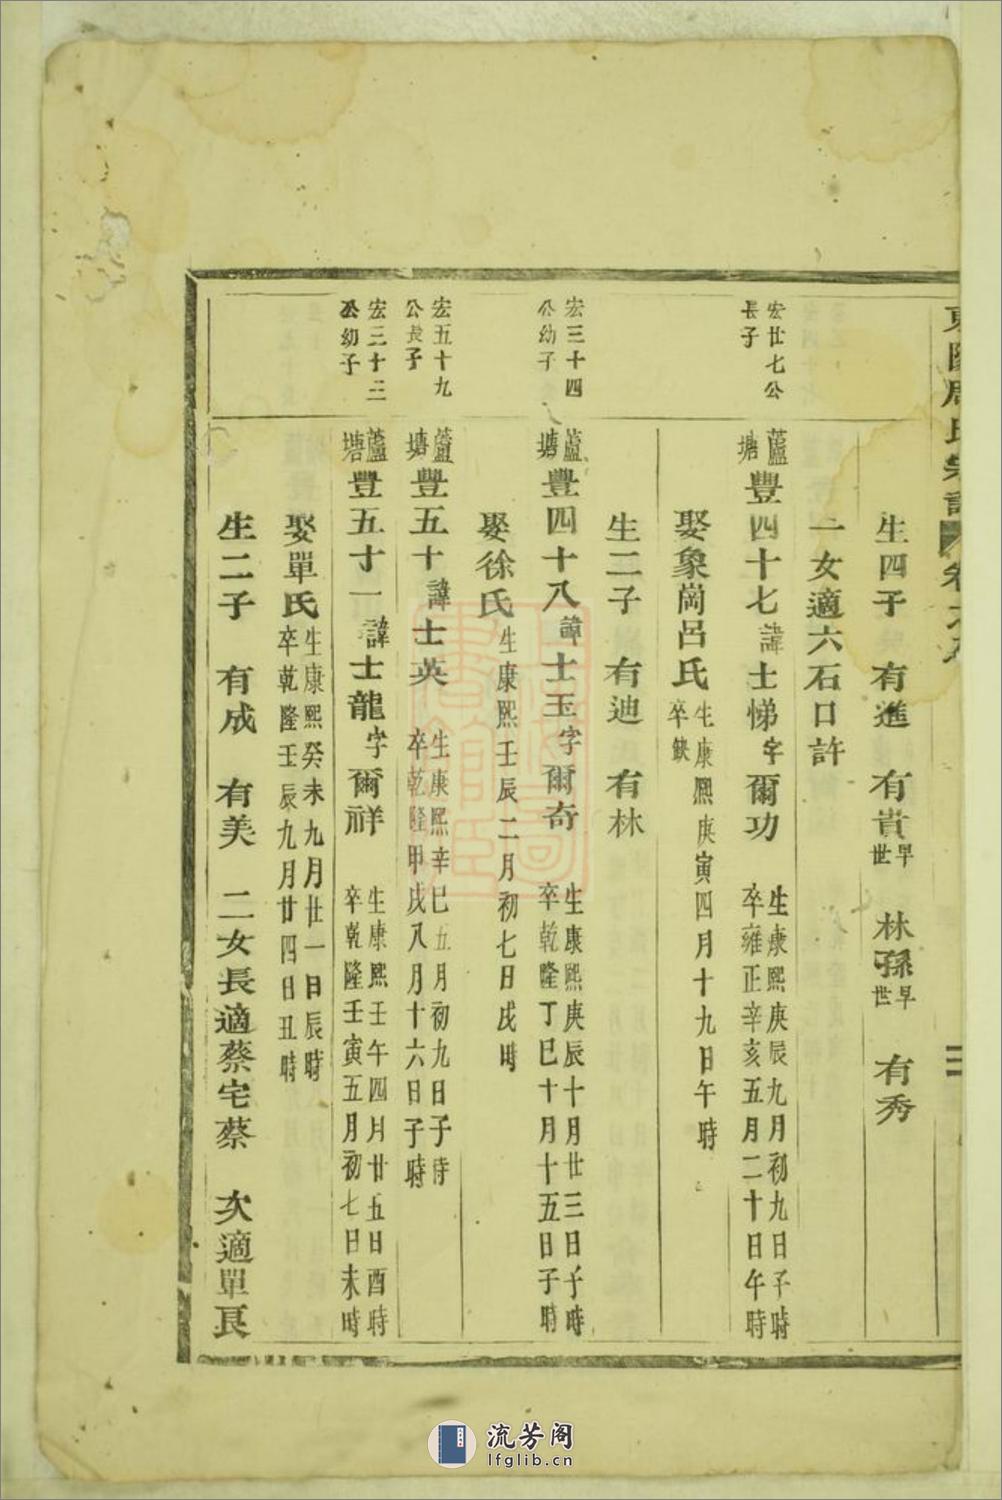 東陽周氏宗譜 卷之
生四子 有進 有貴早世 林孫早世 有秀
一女適六石口許
宏廿七公長子
蘆塘豐四十七諱士悌字爾功 生康熙庚辰九月初九日子時 卒雍正辛亥五月二十日午時
娶象崗呂氏 生康熙庚寅四月十九日午時 卒缺
生二子 有迪 有林
宏三十四公幼子
蘆塘豐四十八諱士玉字爾奇 生康熙庚辰十月廿三日子時 卒乾隆丁巳十月十五日子時
娶徐氏生康熙壬辰二月初七日戌時
宏五十九公長子
蘆塘豐五十諱士英 生康熙辛巳五月初九日子時 卒乾隆甲戌八月十六日子時
宏三十三公幼子
蘆塘豐五十一諱士龍字爾祥 生康熙壬午四月廿五日酉時 卒乾隆壬寅五月初七日未時
娶單氏 生康熙癸未九月廿一日辰時 卒乾隆壬辰九月廿四日丑時
生二子 有成 有美 二女長適蔡宅蔡 次適單良
流芳阁
lfglib.cn